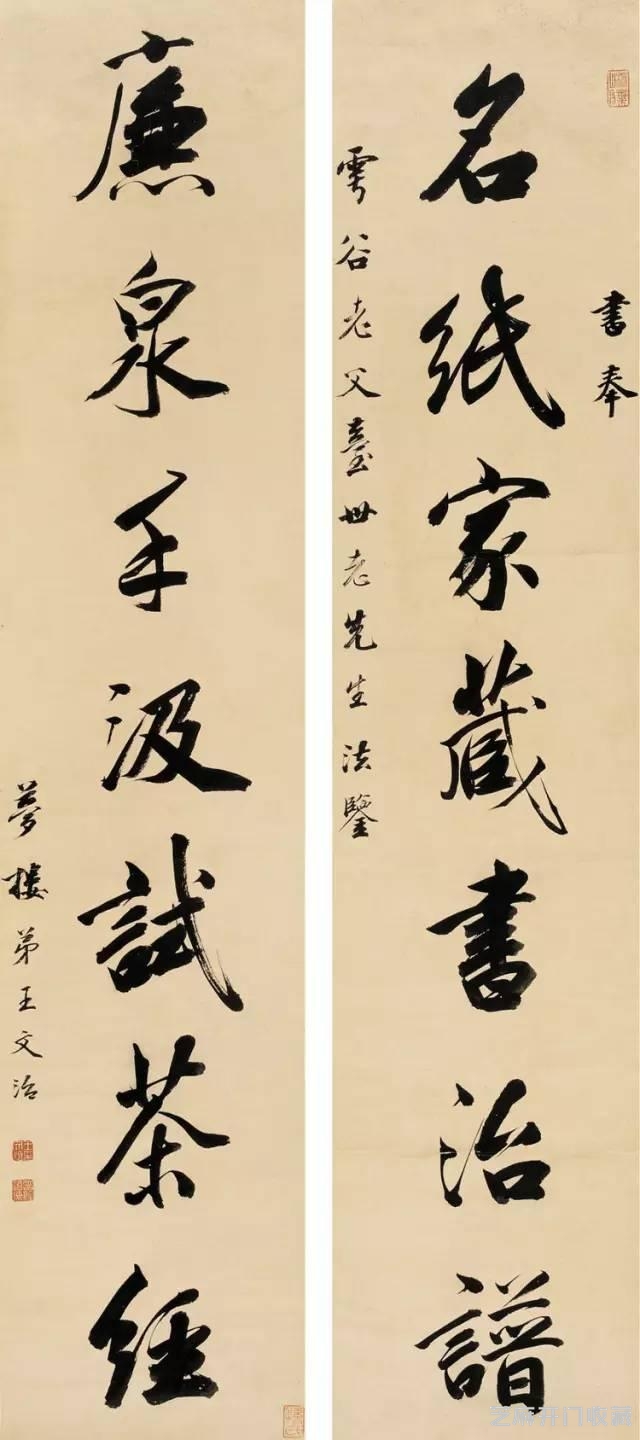 書奉
名紙家藏書治譜
雲谷老父臺世老先生法鑒
廉泉手汲試茶經
夢樓弟王文治
芝麻开门收藏